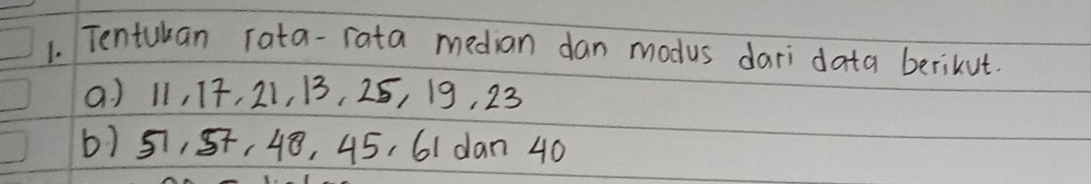 1. Tentukan rata-rata median dan modus dari data berikut.
a) 11, 17, 21, 13, 25, 19, 23
b) 51, 57, 48, 45, 61 dan 40